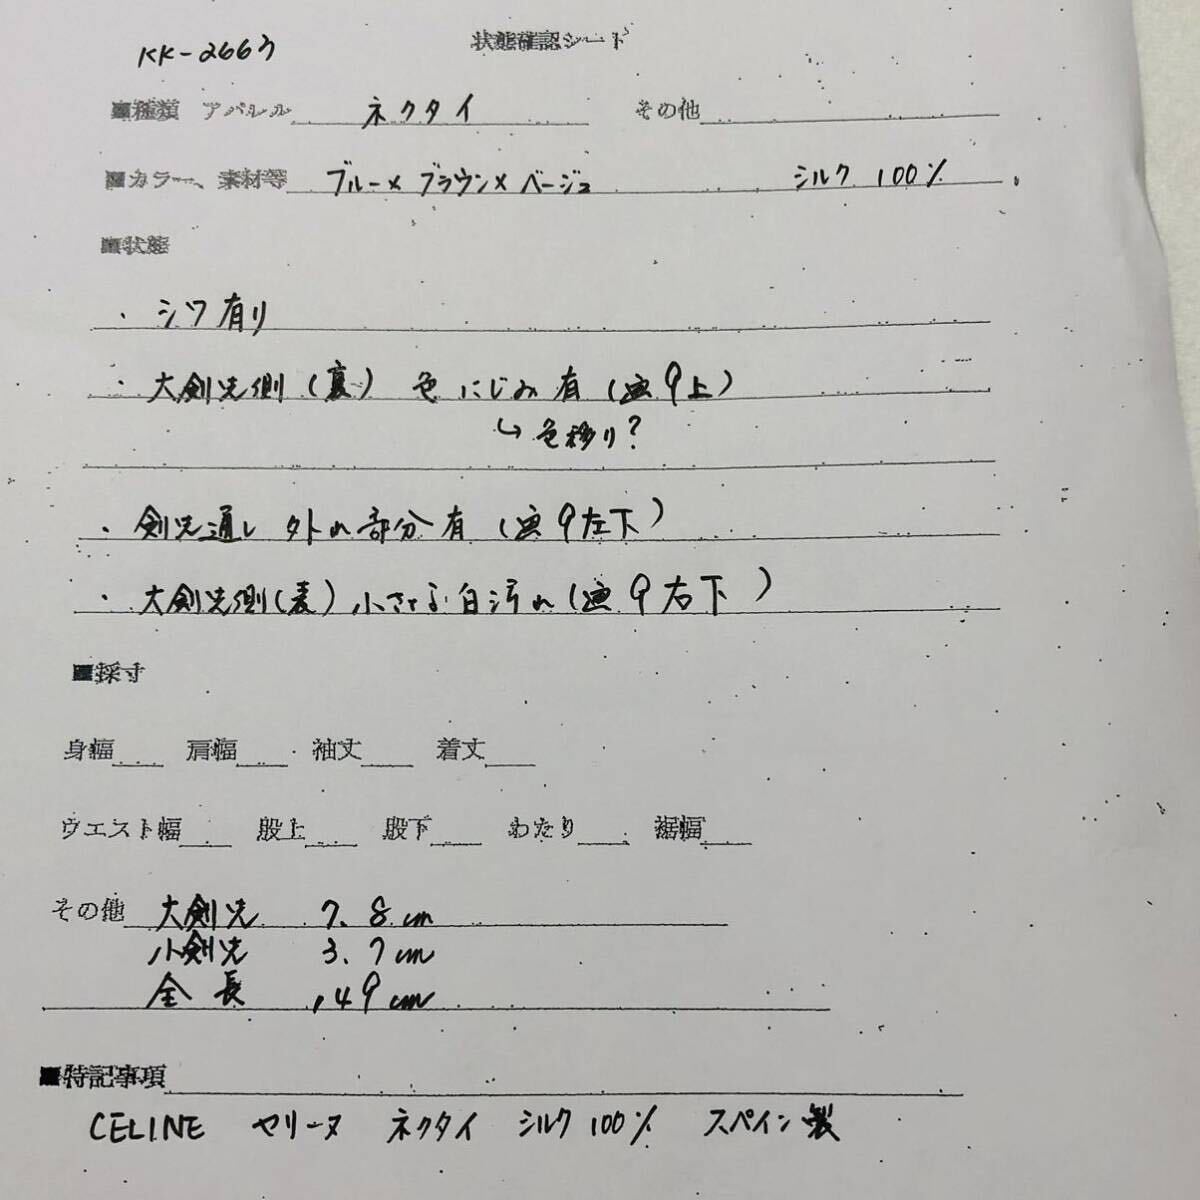 KK-2663
状態確認シート
■種類 アパレル ネクタイ その他
■カラー、素材等 ブルー×ブラウン×ベージュ シルク 100%
■状態
・シワ有り
・大剣先側(裏) 色にじみ有(画9上)
↳色移り?
・剣先通し 外れ部分有(画9左下)
・大剣先側(表)小さな白汚れ(画9右下)
■採寸
身幅 肩幅 袖丈 着丈
ウエスト幅 股上 股下 わたり 裾幅
その他 大剣先 7.8cm
小剣先 3.7cm
全長 149cm
■特記事項
CELINE セリーヌ ネクタイ シルク100% スペイン製